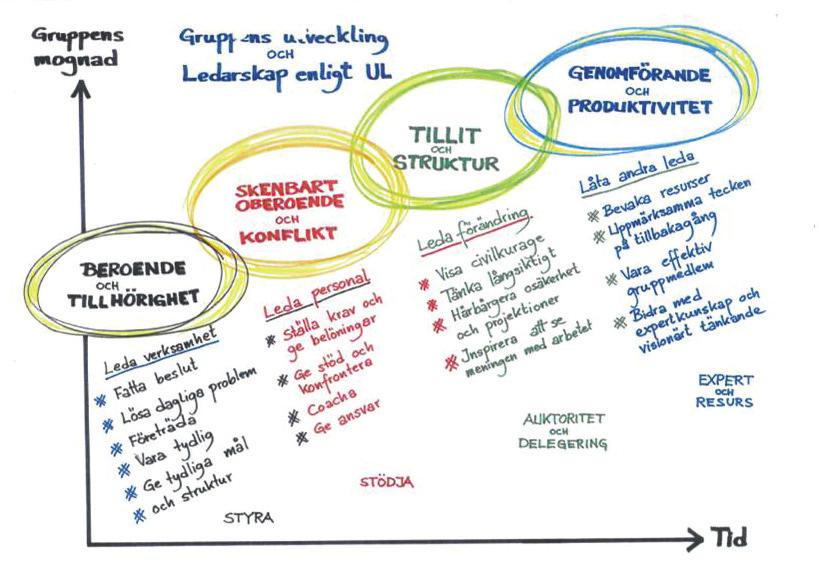 Gruppens
mognad
Gruppens utveckling
OCH
Ledarskap enligt UL
GENOMFÖRANDE
OCH
PRODUKTIVITET
TILLIT
OCH
STRUKTUR
SKENBART
OBEROENDE
OCH
KONFLIKT
BEROENDE
OCH
TILLHÖRIGHET
Leda verksamhet
* Fatta beslut
* Lösa dagliga problem
* Företräda
* Vara tydlig
* Ge tydliga mål
* och struktur
STYRA
Leda personal
* Ställa krav och
ge belöningar
* Ge stöd och
konfrontera
* Coacha
* Ge ansvar
STÖDJA
Leda förändring
* Visa civilkurage
* Tänka långsiktigt
* Härbärgera osäkerhet
och projektioner
* Inspirera att se
meningen med arbetet
AUKTORITET
OCH
DELEGERING
Låta andra leda
* Bevaka resurser
* Uppmärksamma tecken
på tillbakagång
* Vara effektiv
gruppmedlem
* Bidra med
expertkunskap och
visionärt tänkande
EXPERT
OCH
RESURS
Tid